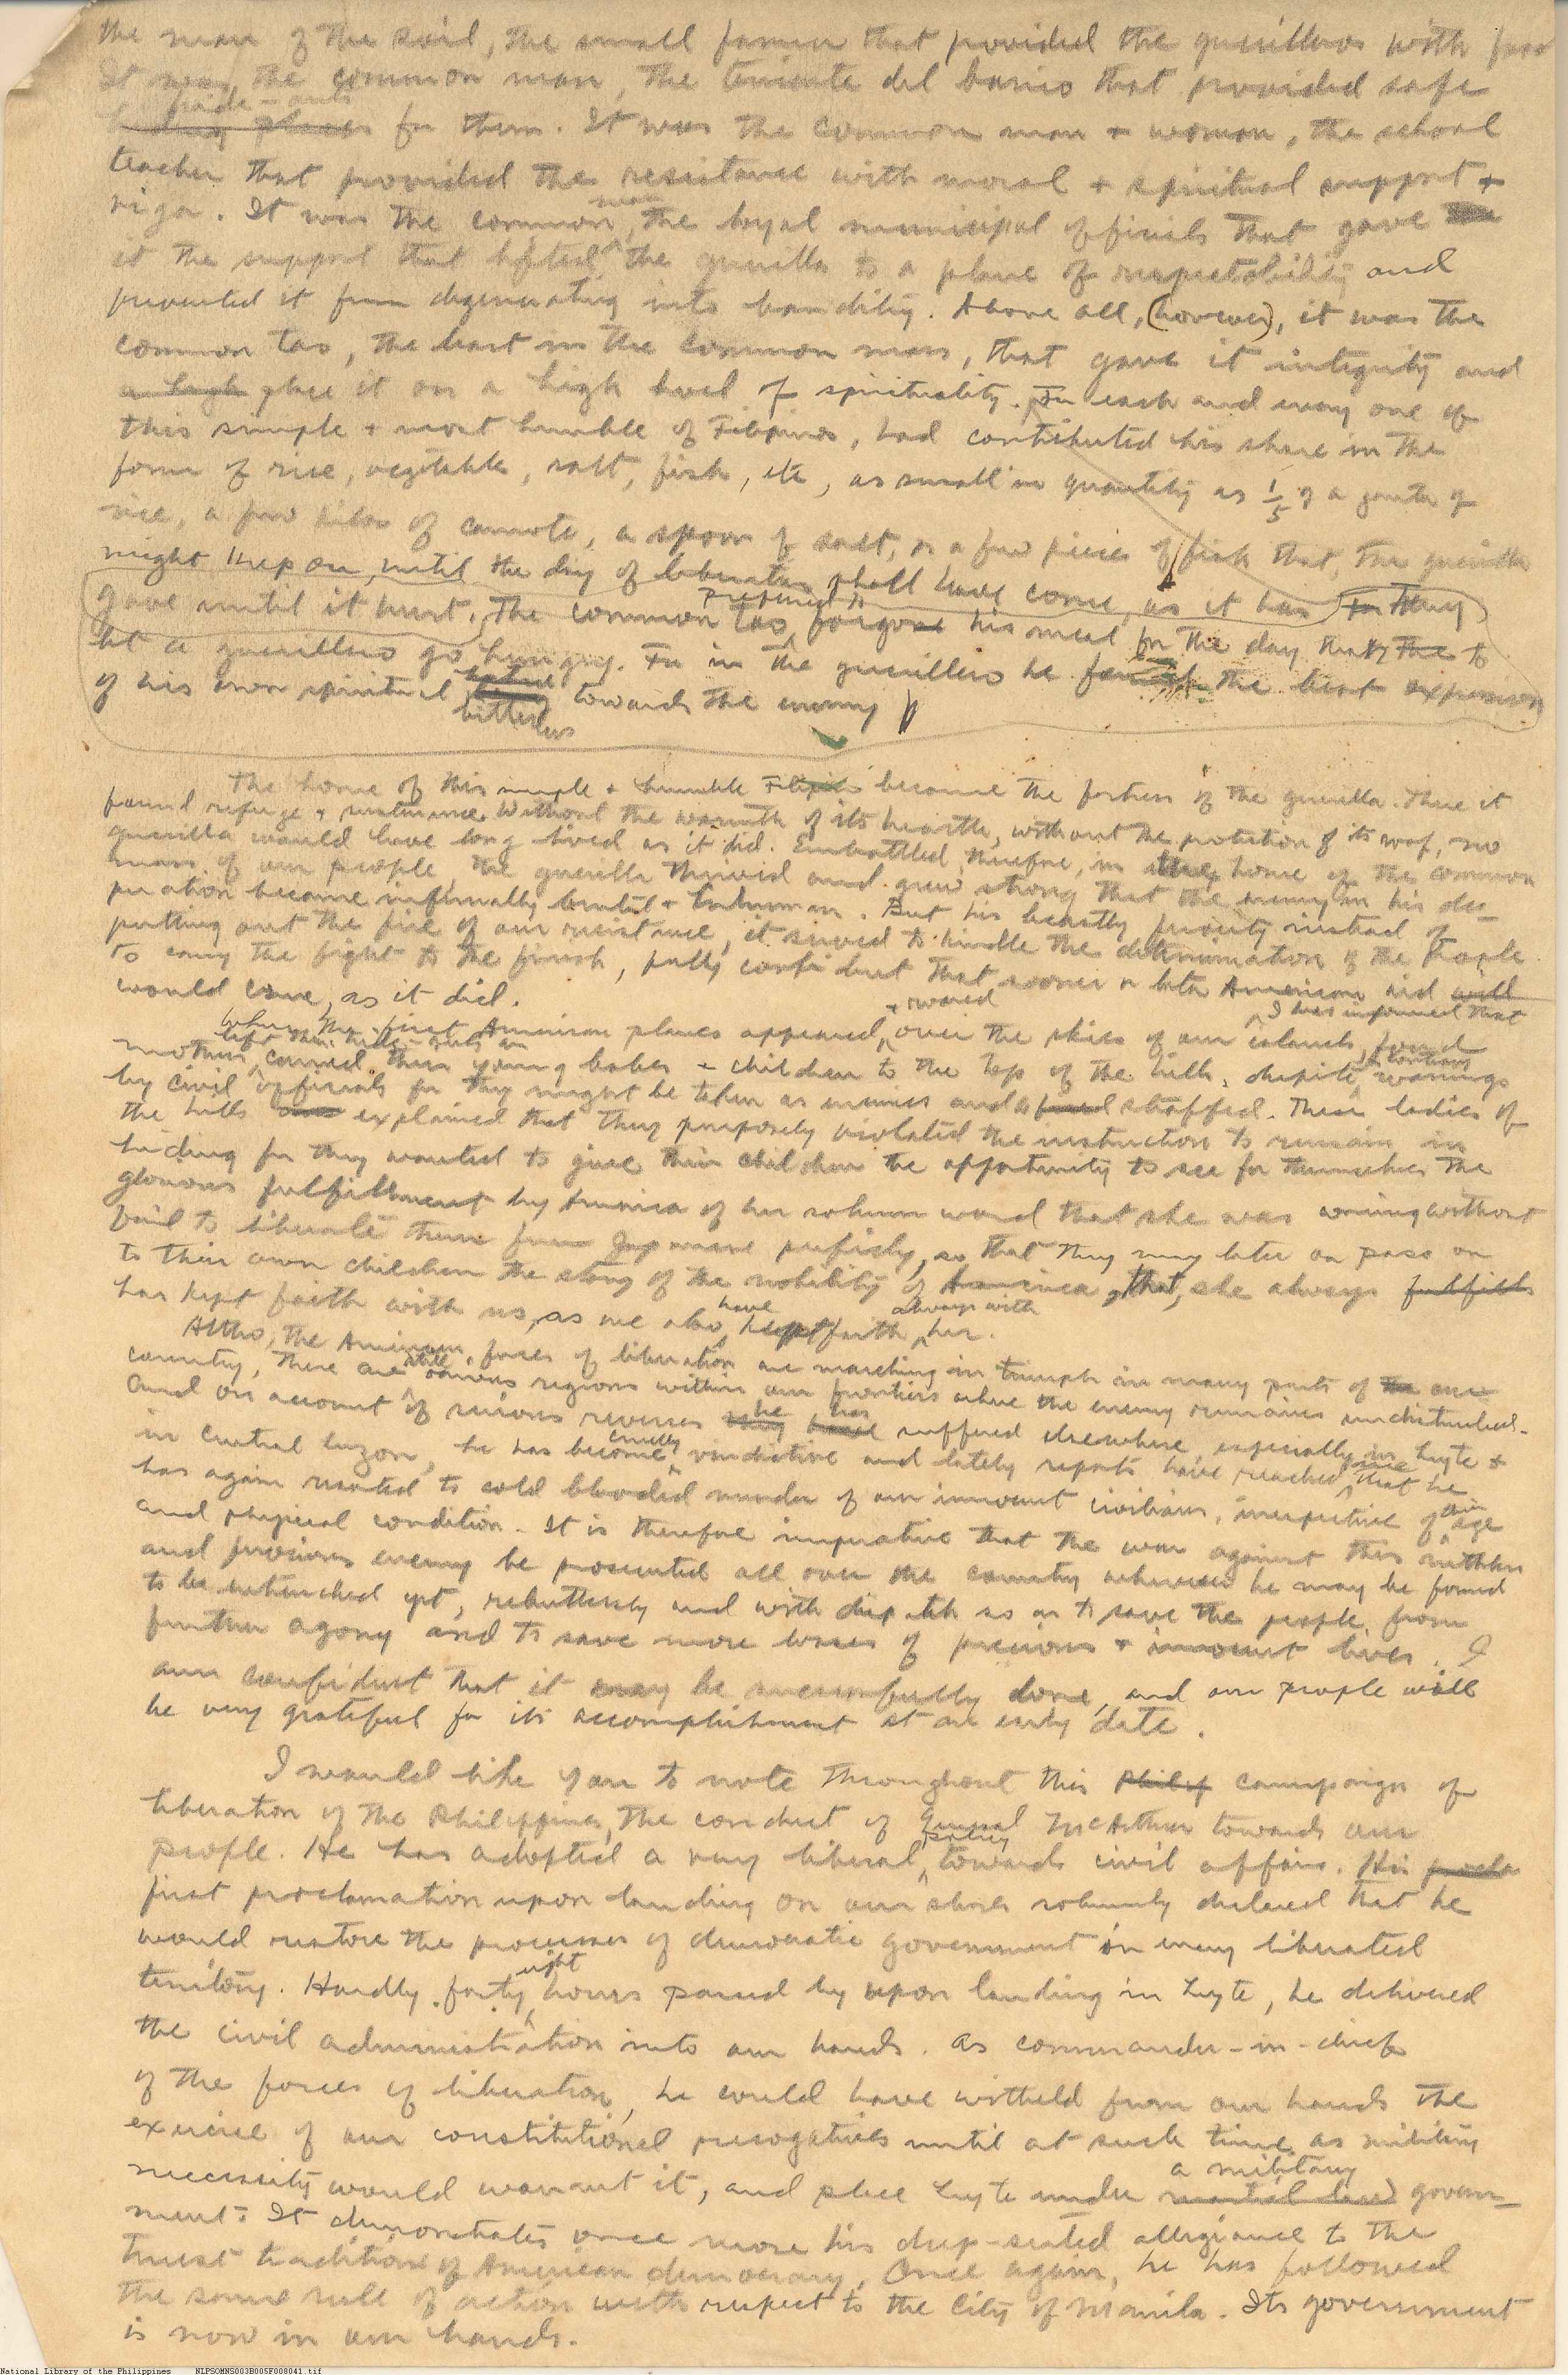 the man of the soil, the small farmer that provided the guerilleros with food
It was, the common man, the teniente del barrio that provided safe
hide-outs
hiding places for them. It was the common man + woman, the school
teacher that provided the resistance with moral + spiritual support +
vigor. It was the common man, the loyal municipal officials that gave the
it the support that lifted the guerilla to a plane of respectability and
prevented it from degenerating into banditry. Above all, (however), it was the
common tao, the heart in the common man, that gave it integrity and
a high place it on a high level of spirituality. For each and every one of
this simple + most humble of Filipinos, had contributed his share in the
form of rice, vegetables, salt, fish, etc, as small in quantity as 1/5 of a ganta of
rice, a few kilos of camote, a spoon of salt, or a few pieces of fish that, the guerilla
might keep on until the day of liberation shall have come, as it has For They
gave until it hurt. The common tao preferred to forgo his meal for the day than to
let a guerillero go hungry. For in the guerillero he found the best expression
of his own spiritual bitterness towards the enemy
The home of this simple + humble Filipino became the fortress of the guerilla. There it
found refuge + sustenance. Without the warmth of its hearth, without the protection of its roof, no
guerilla would have long lived as it did. Embattled, therefore, in the home of the common
man of our people, the guerilla thrived and grew strong that the enemy in his des-
peration became infernally brutal + inhuman. But his beastly ferocity instead of
putting out the fire of our resistance, it served to kindle the determination of the people
to carry the fight to the finish, fully confident that sooner or later American aid will
would come, as it did.
When the first American planes appeared, + roared over the skies of our islands, I was informed that
mothers left their hide-outs and carried their young babes + children to the top of the hills, despite warnings
by civil officials for they might be taken as enemies and strafed. These ladies of
the hills explained that they purposely violated the instruction to remain in
hiding for they wanted to give their children the opportunity to see for themselves the
glorious fulfillment by America of her solemn word that she was coming without
fail to liberate them from Japanese perfidy, so that they may later on pass on
to their own children the story of the nobility of America, that, she always fulfills
has kept faith with us, as we also have kept faith always with her.
Altho, the American forces of liberation are marching in triumph in many parts of the our
country, there are still various regions within our frontiers where the enemy remains undisturbed.
And on account of serious reverses he has suffered elsewhere, especially in Leyte +
in Central Luzon, he has become cruelly vindictive and lately reports have reached me that he
has again resorted to cold blooded murder of our innocent civilians, irrespective of sex, age
and physical condition. It is therefore imperative that the war against this ruthless
and ferocious enemy be prosecuted all over the country wherever he may be found
to be entrenched yet, relentlessly and with dispatch so as to save the people from
further agony and to save more losses of precious + innocent lives. I
am confident that it may be successfully done, and our people will
be very grateful for its accomplishment at an early date.
I would like you to note throughout this Philip campaign of
liberation of the Philippines, the conduct of General McArthur towards our
people. He has adopted a very liberal policy towards civil affairs. His procla
first proclamation upon landing on our shores solemnly declared that he
would restore the processes of democratic government in every liberated
territory. Hardly forty eight hours passed by upon landing in Leyte, he delivered
the civil administration into our hands. As commander-in-chief
of the forces of liberation, he could have witheld from our hands the
exercise of our constitutional prerogatives until at such time as military
necessity would warrant it, and place Leyte under a military martial law govern-
ment. It demonstrates once more his deep-seated allegiance to the
truest traditions of American democracy. Once again, he has followed
the same rule of action with respect to the City of Manila. Its government
is now in our hands.
National Library of the Philippines NLPSOMNS003B005F008041.tif